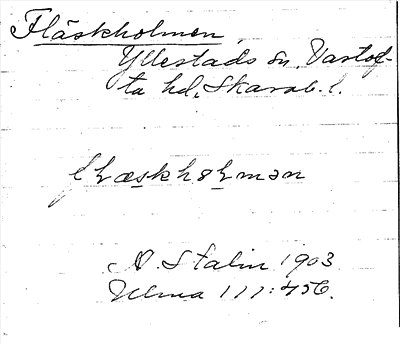 Fläskholmen,
Yllestads sn, Vartof-
ta hd, Skarab. l.
flæskhɷlmən
A. Stalin 1903
Ulma 111:456.